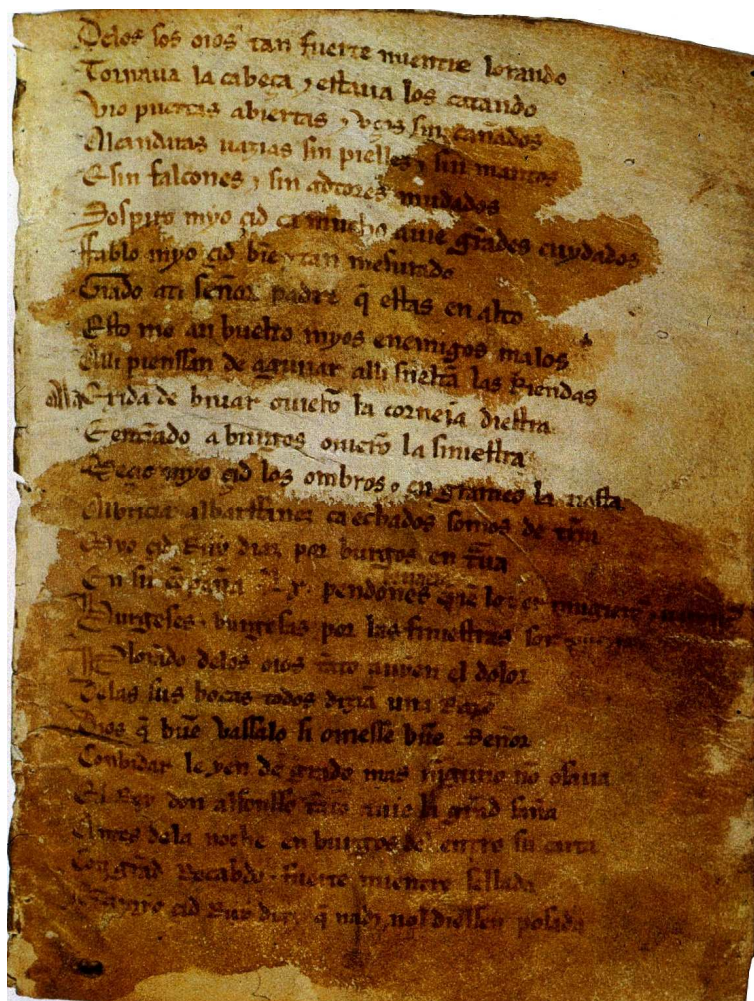 Delos sos oios tan fuerte mientre lorando
Tornaua la cabeça ⁊ estaua los catando
Vio puertas abiertas ⁊ vços sin cañados
Alcandaras uazias sin pielles ⁊ sin mantos
E sin falcones ⁊ sin adtores mudados
Sospiro myo çid ca mucho auie grãdes cuydados
Ffablo myo çid biẽ ⁊ tan mesurado
Grado ati señor padre q̃ estas en alto
Esto me an buelto myos enemigos malos
Alli pienssan de aguiiar alli sueltã las Riendas
Ala Exida de biuar ouierõ la corneia diestra
E entrãdo a burgos ouierõ la siniestra
Meçio myo çid los ombros ⁊ en grameo la tiesta
Albricia albarffanez ca echados somos de tr̃ra
Myo çid Ruy diaz por burgos en traua
En su cõpaña .Lx. pendones
Burgeses ⁊ burgesas por las finiestras son
Plorãdo delos oios tãto auyen el dolor
Delas sus bocas todos dizian una Razõ
Dios q̃ buẽ vassalo si ouiesse buẽ Señor
Conbidar le yen de grado mas ninguno nõ osaua
El Rey don alfonsso tãto auie la grãd saña
Antes dela noche en burgos del entro su carta
Con grãd Recabdo ⁊ fuerte mientre sellada
çid Ruy diaz q̃ nadi nol diessen posada